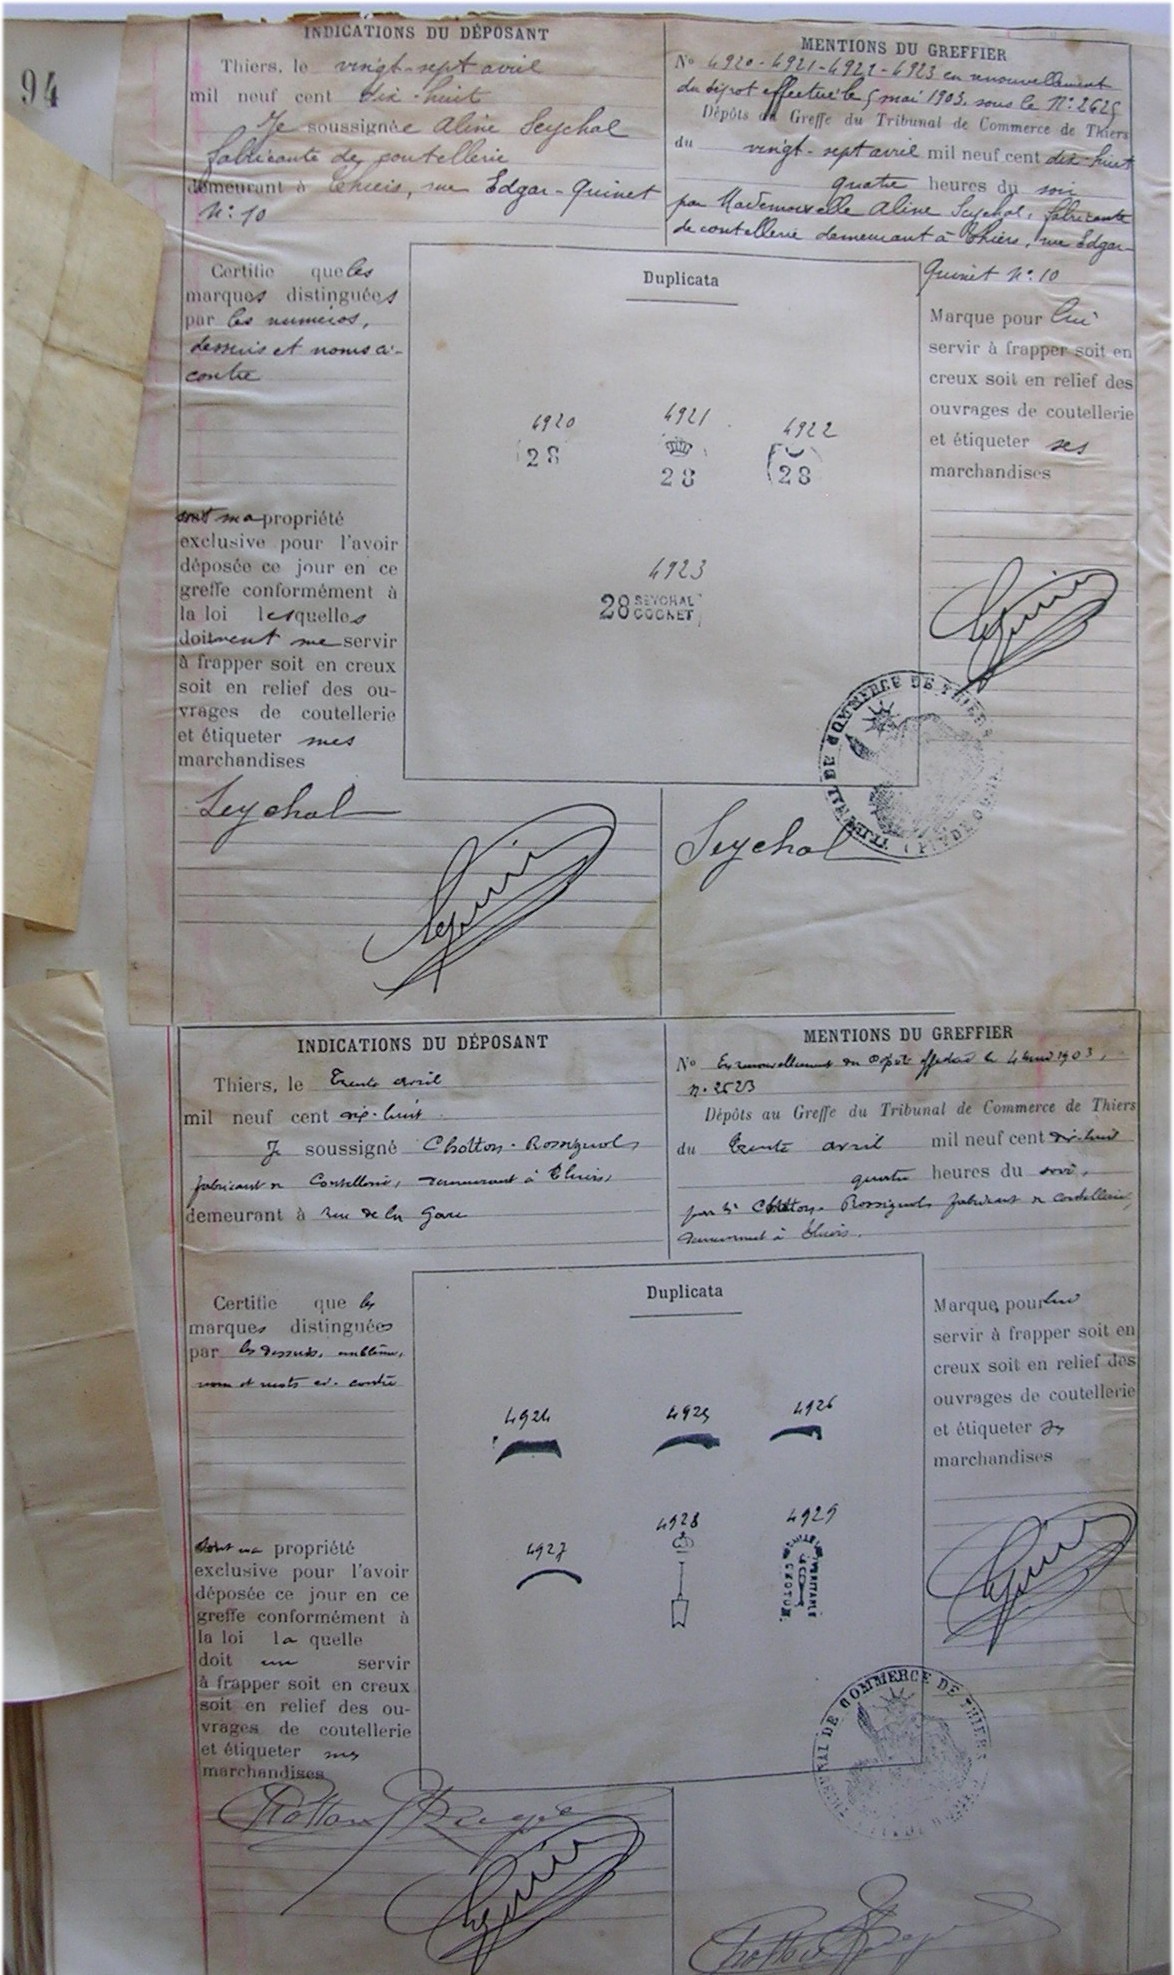 94
INDICATIONS DU DÉPOSANT
Thiers, le vingt-sept avril
mil neuf cent dix-huit
Je soussignée Aline Seychal
fabricante de coutellerie
demeurant à Thiers, rue Edgar-Quinet
N: 10
MENTIONS DU GREFFIER
No 4920-4921-4922-4923 en renouvellement
du dépot effectué le 5 mai 1903. sous le N: 2625
Dépôts au Greffe du Tribunal de Commerce de Thiers
du vingt-sept avril mil neuf cent dix-huit
quatre heures du soir
par Mademoiselle Aline Seychal, fabricante
de coutellerie demeurant à Thiers, rue Edgar-
Quinet N: 10
Certifie que les
marques distinguées
par les numéros,
dessins et noms ci-
contre
sont ma propriété
exclusive pour l'avoir
déposée ce jour en ce
greffe conformément à
la loi lesquelles
doivent me servir
à frapper soit en creux
soit en relief des ou-
vrages de coutellerie
et étiqueter mes
marchandises
Duplicata
4920
28
4921
28
4922
28
4923
28 SEYCHAL
COGNET
Marque pour lui
servir à frapper soit en
creux soit en relief des
ouvrages de coutellerie
et étiqueter ses
marchandises
TRIBUNAL DE COMMERCE DE THIERS
Seychal
Seychal
INDICATIONS DU DÉPOSANT
Thiers, le Trente avril
mil neuf cent dix-huit
Je soussigné Chotton-Rossignol
fabricant de Coutellerie, demeurant à Thiers,
demeurant à rue de la Gare
MENTIONS DU GREFFIER
No En renouvellement du Dépôt effectué le 4 mai 1903,
n. 2623
Dépôts au Greffe du Tribunal de Commerce de Thiers
du trente avril mil neuf cent dix-huit
quatre heures du soir,
par Mr Chotton-Rossignol fabricant de coutellerie,
demeurant à Thiers.
Certifie que les
marques distinguées
par les dessins, emblème,
nom et mots ci-contre
sont ma propriété
exclusive pour l'avoir
déposée ce jour en ce
greffe conformément à
la loi laquelle
doit me servir
à frapper soit en creux
soit en relief des ou-
vrages de coutellerie
et étiqueter mes
marchandises
Duplicata
4924
4925
4926
4927
4928
4929
VERITABLE
Marque pour lui
servir à frapper soit en
creux soit en relief des
ouvrages de coutellerie
et étiqueter ses
marchandises
TRIBUNAL DE COMMERCE DE THIERS